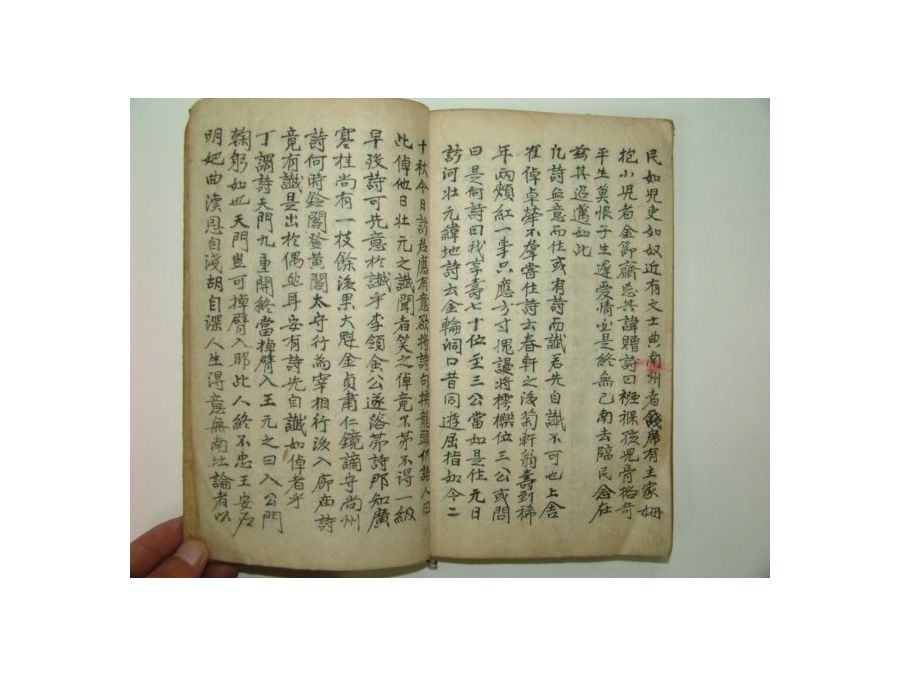 民如児吏如奴近有文士典南州者餞席有主家姆
抱小児者金節齋忘其諱贈詩曰襁褓孩児骨格奇
平生莫恨子生遲愛情如是終無已南去臨民念在
玆其迢邁如此
凡詩無意而作或有詩而讖若先自讖不可也上舍
崔倬卓犖不羣嘗作詩云春軒之後菊軒翁壽到稀
年兩頰紅一事只應方寸愧謾將樗櫟位三公或問
曰是何詩曰我享壽七十位至三公當如是作元日
訪河壯元緯地詩云金輪洞口昔同遊屈指如今二
十秋今日訪君應有意欲將詩句換龍頭仍語人曰
此倬他日壯元之讖聞者笑之倬竟不第不得一級
早發詩可先意於讖乎李領金公遂落第詩那知廣
寒桂尚有一枝餘後果大魁金貞肅仁鏡謫守尚州
詩何時鈴閣登黃閣太守行為宰相行後入廊庙詩
竟有讖是出於偶然耳安有詩先自讖如倬者乎
丁謂詩天門九重開終當掉臂入王元之曰入公門
鞠躬如也天門豈可掉臂入耶此人終不忠王安石
明妃曲漢恩自淺胡自深人生得意無南北論者以